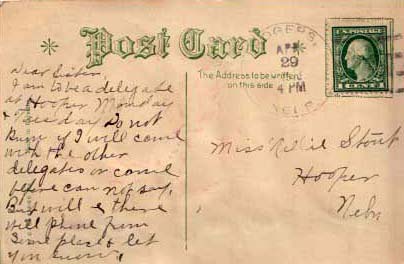 Post Card
The Address to be written
on this side
ROGERS,
APR
29
4 PM
NEBR.
U.S. POSTAGE
1 CENT 1
Dear Sister
I am to be a delegate
at Hooper Monday
& Tuesday Do not
know if I will come
with the other
delegates or come
before can not say.
But will & there
will phone from
Some place & let
you know.
Miss Nellie Stout
Hooper
Nebr